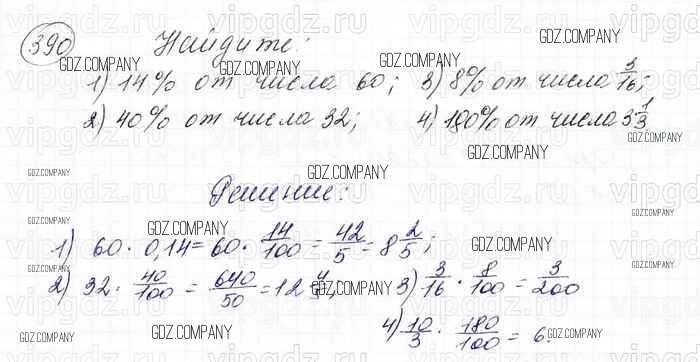 390 Найдите:
1) 14% от числа 60; 3) 8% от числа 3/16;
2) 40% от числа 32; 4) 180% от числа 3 1/3
Решение:
1) 60 · 0,14 = 60 · 14/100 = 42/5 = 8 2/5;
2) 32 · 40/100 = 640/50 = 12 4/
3) 3/16 · 8/100 = 3/200
4) 10/3 · 180/100 = 6.
GDZ.COMPANY
vipgdz.ru